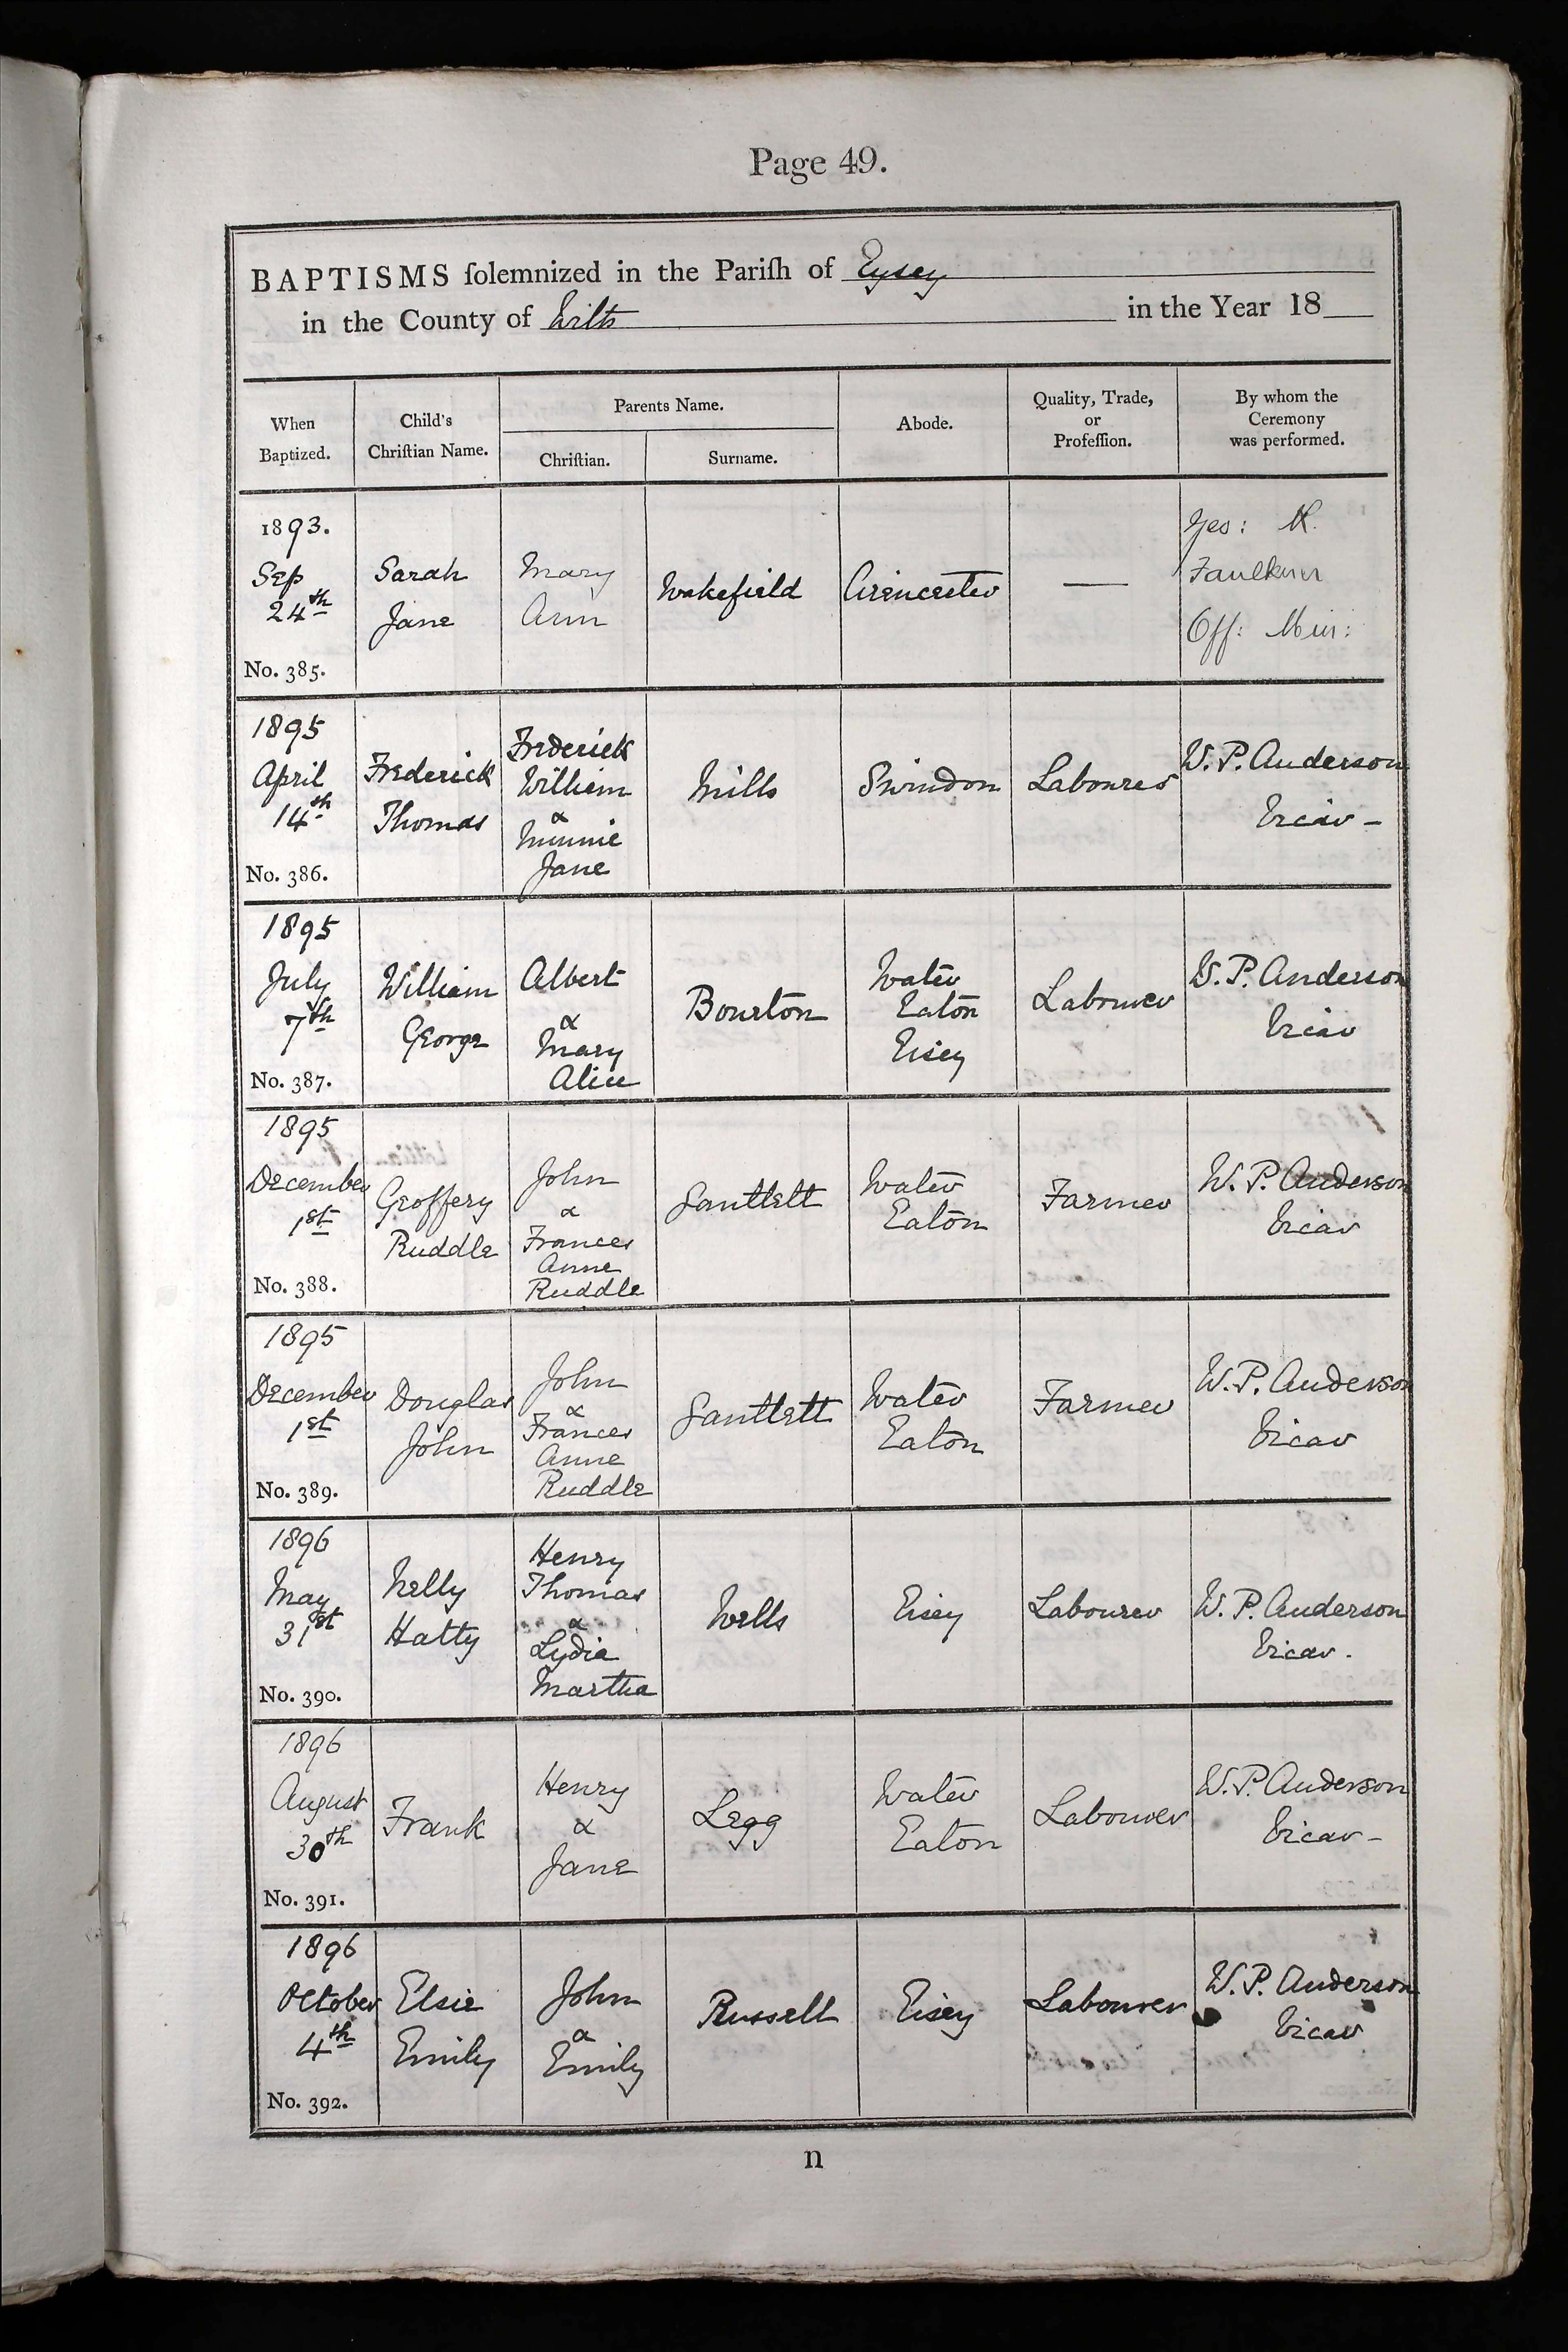 Page 49.
BAPTISMS ſolemnized in the Pariſh of Eysey
in the County of Wilts in the Year 18
When Baptized.
Child's Chriſtian Name.
Parents Name.
Chriſtian.
Surname.
Abode.
Quality, Trade, or Profeſſion.
By whom the Ceremony was performed.
1893.
Sep
24th
No. 385.
Sarah
Jane
Mary
Ann
Wakefield
Cirencester
—
Geo: H.
Faulkner
Off: Min:
1895
April
14th
No. 386.
Frederick
Thomas
Frederick
William
&
Minnie
Jane
Mills
Swindon
Labourer
W. P. Anderson
Vicar -
1895
July
7th
No. 387.
William
George
Albert
&
Mary
Alice
Bourton
Water
Eaton
Eisey
Labourer
W. P. Anderson
Vicar
1895
December
1st
No. 388.
Geoffery
Ruddle
John
&
Frances
Anne
Ruddle
Gantlett
Water
Eaton
Farmer
W. P. Anderson
Vicar
1895
December
1st
No. 389.
Douglas
John
John
&
Frances
Anne
Ruddle
Gantlett
Water
Eaton
Farmer
W. P. Anderson
Vicar
1896
May
31st
No. 390.
Nelly
Hatty
Henry
Thomas
&
Lydia
Martha
Wells
Eisey
Labourer
W. P. Anderson
Vicar.
1896
August
30th
No. 391.
Frank
Henry
&
Jane
Legg
Water
Eaton
Labourer
W. P. Anderson
Vicar -
1896
October
4th
No. 392.
Elsie
Emily
John
&
Emily
Russell
Eisey
Labourer
W. P. Anderson
Vicar
n